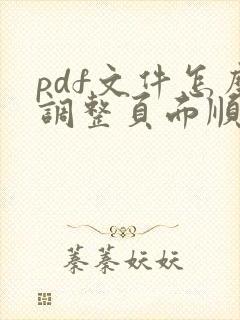 pdf文件怎麼
調整頁面順
蓁蓁妖妖